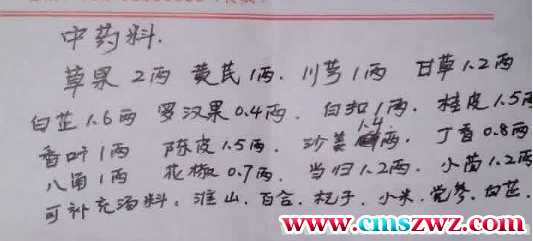 中药料.
草果 2两 黄芪 1两. 川芎 1两 甘草 1.2两
白芷 1.6两 罗汉果 0.4两. 白扣 1两. 桂皮 1.5两
香叶 1两 陈皮 1.5两. 沙姜 1.4两. 丁香 0.8两
八角 1两 花椒 0.7两. 当归 1.2两. 小茴 1.2两
可补充汤料. 淮山. 百合. 杞子. 小米. 党参. 白芷.
www.cmszwz.com